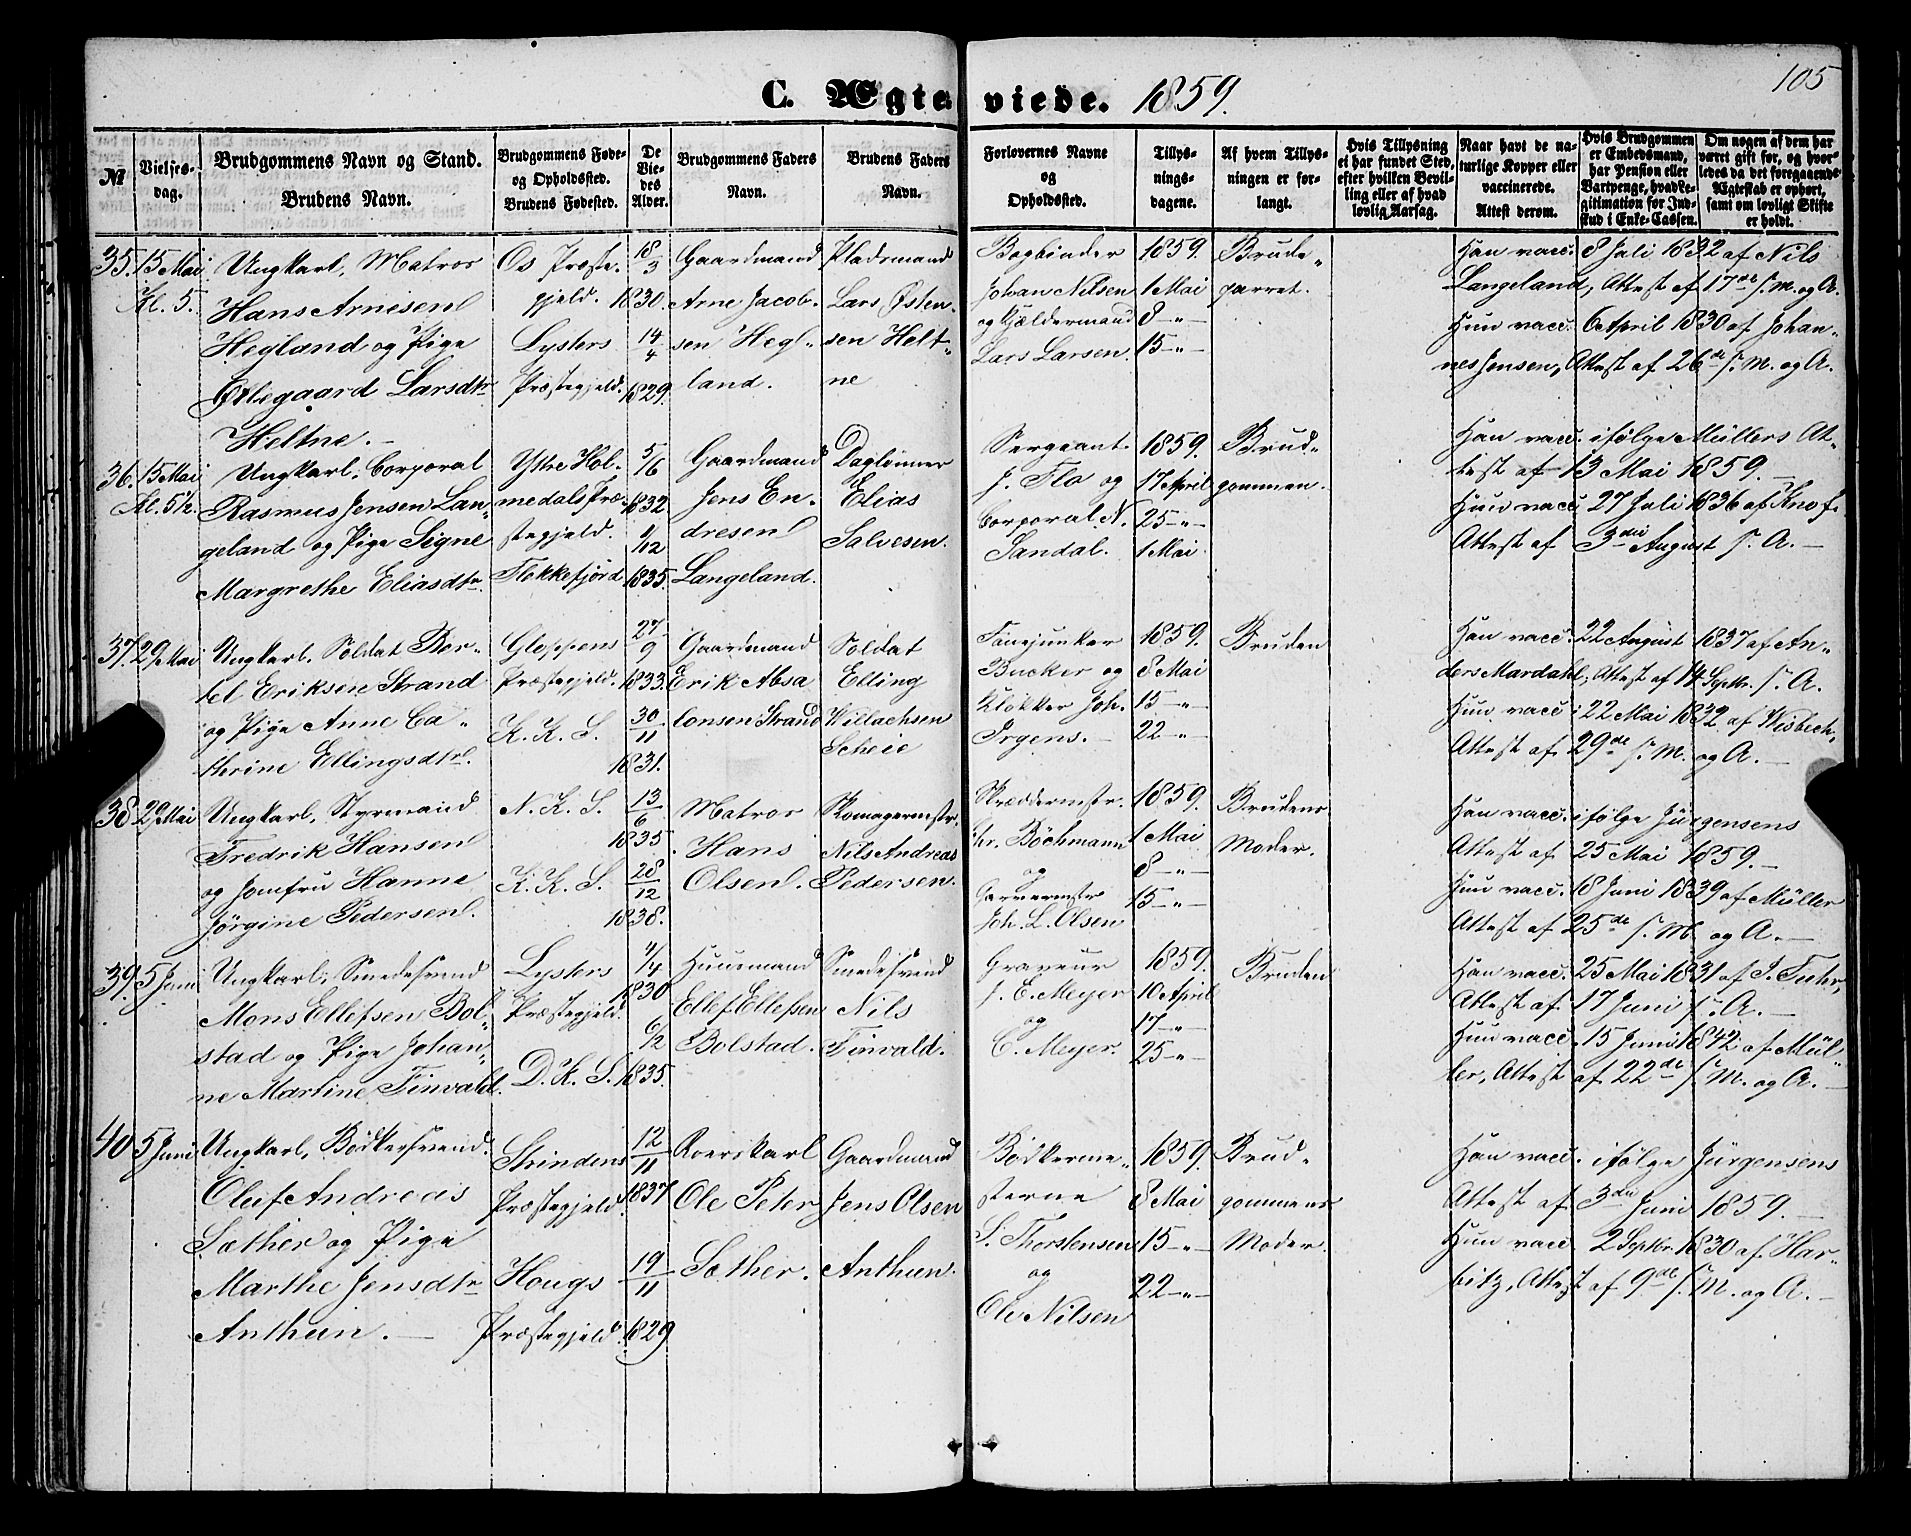 105
C. Ægteviede. 1859.
№
Vielses-
dag.
Brudgommens Navn og Stand.
Brudens Navn.
Brudgommens Føde-
og Opholdssted.
Brudens Fødested.
De
Vie-
des
Alder.
Brudgommens Faders
Navn.
Brudens Faders
Navn.
Forlovernes Navne
og
Opholdssted.
Tillys-
nings-
dagene.
Af hvem Tillys-
ningen er for-
langt.
Hvis Tillysning
ei har fundet Sted,
efter hvilken Bevil-
ling eller af hvad
lovlig Aarsag.
Naar havt de na-
turlige Kopper eller
vaccinerede.
Attest derom.
Hvis Brudgommen
er Embedsmand,
har Pension eller
Vartpenge, hvad Le-
gitimation for Ind-
skud i Enke-Cassen.
Om nogen af dem har
været gift før, og hvor-
ledes da det foregaaende
Ægteskab er ophørt,
samt om lovligt Skifte
er holdt.
35.
15 Mai
Kl. 5.
Ungkarl, Matros
Hans Arnesen
Hegland og Pige
Øllegaard Larsdtr
Heltne.-
Os Præste-
gjeld.
Lysters
Præstegjeld.
18/3
1830.
14/4
1829.
Gaardmand
Arne Jacob-
sen Hegl-
land.
Pladsmand
Lars Østen-
sen Helt-
ne
Bogbinder
Johan Nilsen
og Kjældermand
Lars Larsen.
1859.
1 Mai
8 -"-
15 -"-
Brude-
parret.
Han vacc. 8 Juli 1832 af Nils
Langeland, Attest af 17de s. M. og A.
Hun vacc. 6 April 1830 af Johan-
nes Jensen, Attest af 26de s. M. og A.
36.
15 Mai
Kl. 5½.
Ungkarl, Corporal
Rasmus Jensen Lan-
geland og Pige Signe
Margrethe Eliasdtr.
Ytre Hol-
medals Præ-
stegjeld.
Flekkefjord
5/6
1832
1/12
1835.
Gaardmand
Jens En-
dresen
Langeland.
Dagleiner
Elias
Salvesen.
Sergeant
J. Flo og
Corporal N.
Sandal.
1859.
17 April
25 -"-
1 Mai
Brud-
gommen.
Han vacc. ifølge Müllers At-
test af 13 Mai 1859.-
Hun vacc. 27 Juli 1836 af Knoff.
Attest af 3die August s. A.-
37.
29 Mai
Ungkarl, Soldat Ber-
tel Eriksen Strand
og Pige Anne Ca-
thrine Ellingsdtr.
Gloppens
Præstegjeld.
K. K. S.
27/9
1833.
30/11
1831.
Gaardmand
Erik Absa
lonsen Strand
Soldat
Elling
Willachsen
Scheie
Fanejunker
Bucker og
Klokker Joh.
Irgens.-
1859.
8 Mai
15 -"-
22 -"-
Bruden
Han vacc. 22 August 1837 af An-
ders Mardahl, Attest af 14 Septbr. s. A.
Hun vacc. 22 Mai 1832 af Wisbech,
Attest af 29de s. M. og A.-
38.
29 Mai
Ungkarl, Styrmand
Fredrik Hansen
og Jomfru Hanne
Jørgine Pedersen.
N. K. S.
K. K. S.
13/6
1835.
28/12
1838.
Matros
Hans
Olsen.
Skomagermstr.
Nils Andreas
Pedersen.
Skræddermstr.
Chr. Böchmann
og
Garvermstr
Joh. L. Olsen
1859.
1 Mai
8 -"-
15 -"-
Brudens
Moder.
Han vacc. ifølge Jürgensens
Attest af 25 Mai 1859.-
Hun vacc. 18 Juni 1839 af Müller
Attest af 25de s. M. og A.-
39.
5 Juni
Ungkarl, Smedesvend
Mons Ellefsen Bol-
stad og Pige Johan-
ne Martine Finvald.
Lysters
Præstegjeld.
D. K. S.
4/4
1830
6/2
1835.
Huusmand
Ellef Ellefsen
Bolstad.
Smedesvend
Nils
Finvald.
Graveur
J. E. Meyer
og
C. Meyer.
1859.
10 April
17 -"-
25 -"-
Bruden
Han vacc. 25 Mai 1831 af P. Tuhr,
Attest af 17 Juni s. A.-
Hun vacc. 15 Juni 1842 af Mül-
ler, Attest af 22de s. M. og A.-
40
5 Juni
Ungkarl, Bødkersvend
Oluf Andreas
Sæther og Pige
Marthe Jensdtr
Anthun.-
Strindens
Præstegjeld.
Hougs
Præstegjeld.
12/11
1837
19/11
1829
Roerskarl
Ole Peter
Sæther.
Gaardmand
Jens Olsen
Anthun.
Bødkerme-
sterne
S. Thorstensen
og
Ole Nilsen
1859.
8 Mai
15 -"-
22 -"-
Brud-
gommens
Moder.
Han vacc. ifølge Jürgensens
Attest af 3die Juni 1859.-
Hun vacc. 2 Septbr. 1830 af Har-
bitz, Attest af 9de s. M. og A.-